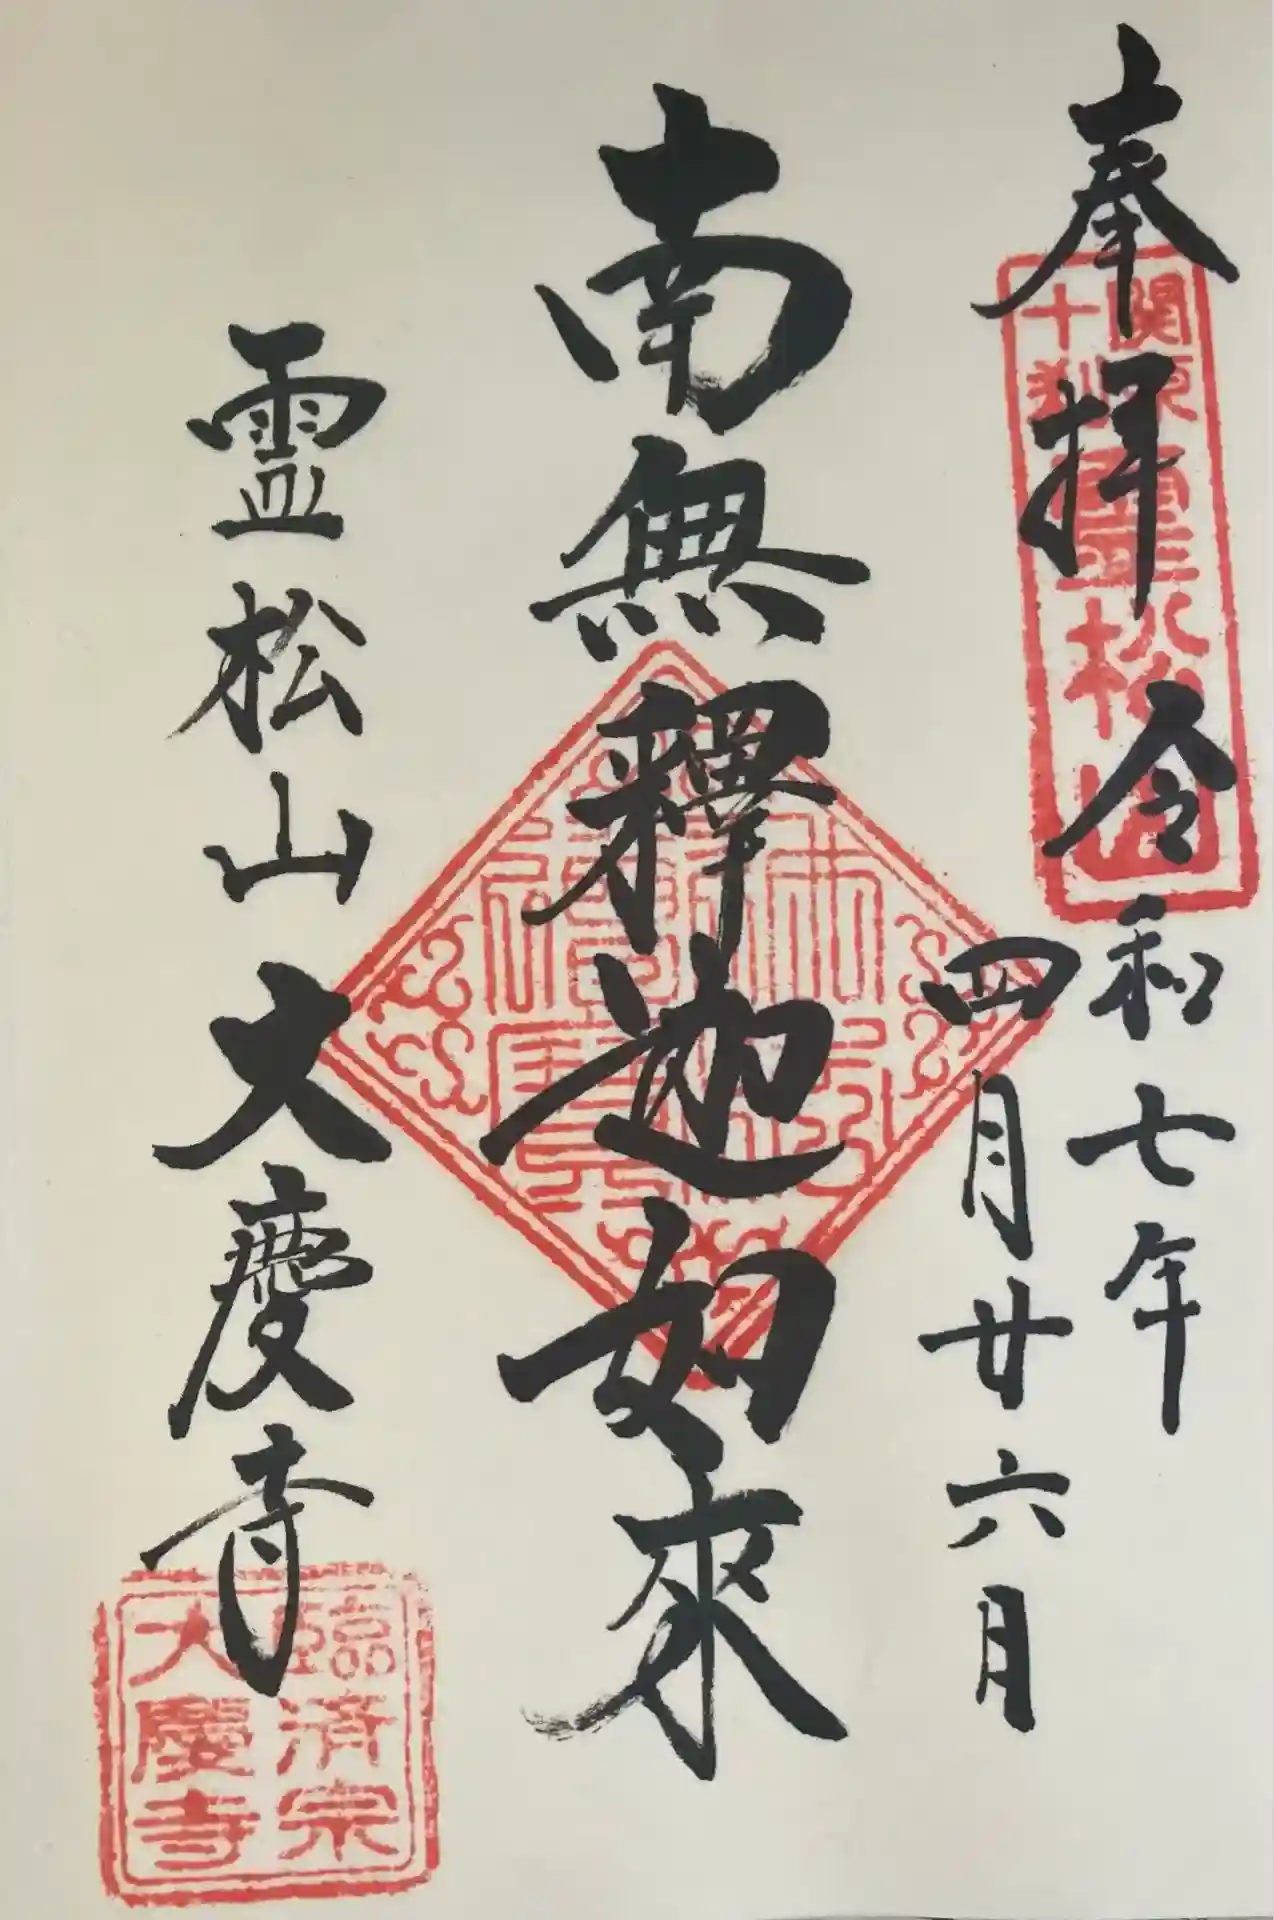 奉拝
令和七年
四月廿六日
南無釋迦如來
霊松山大慶寺
関東
十刹
霊松山
臨済宗
大慶寺